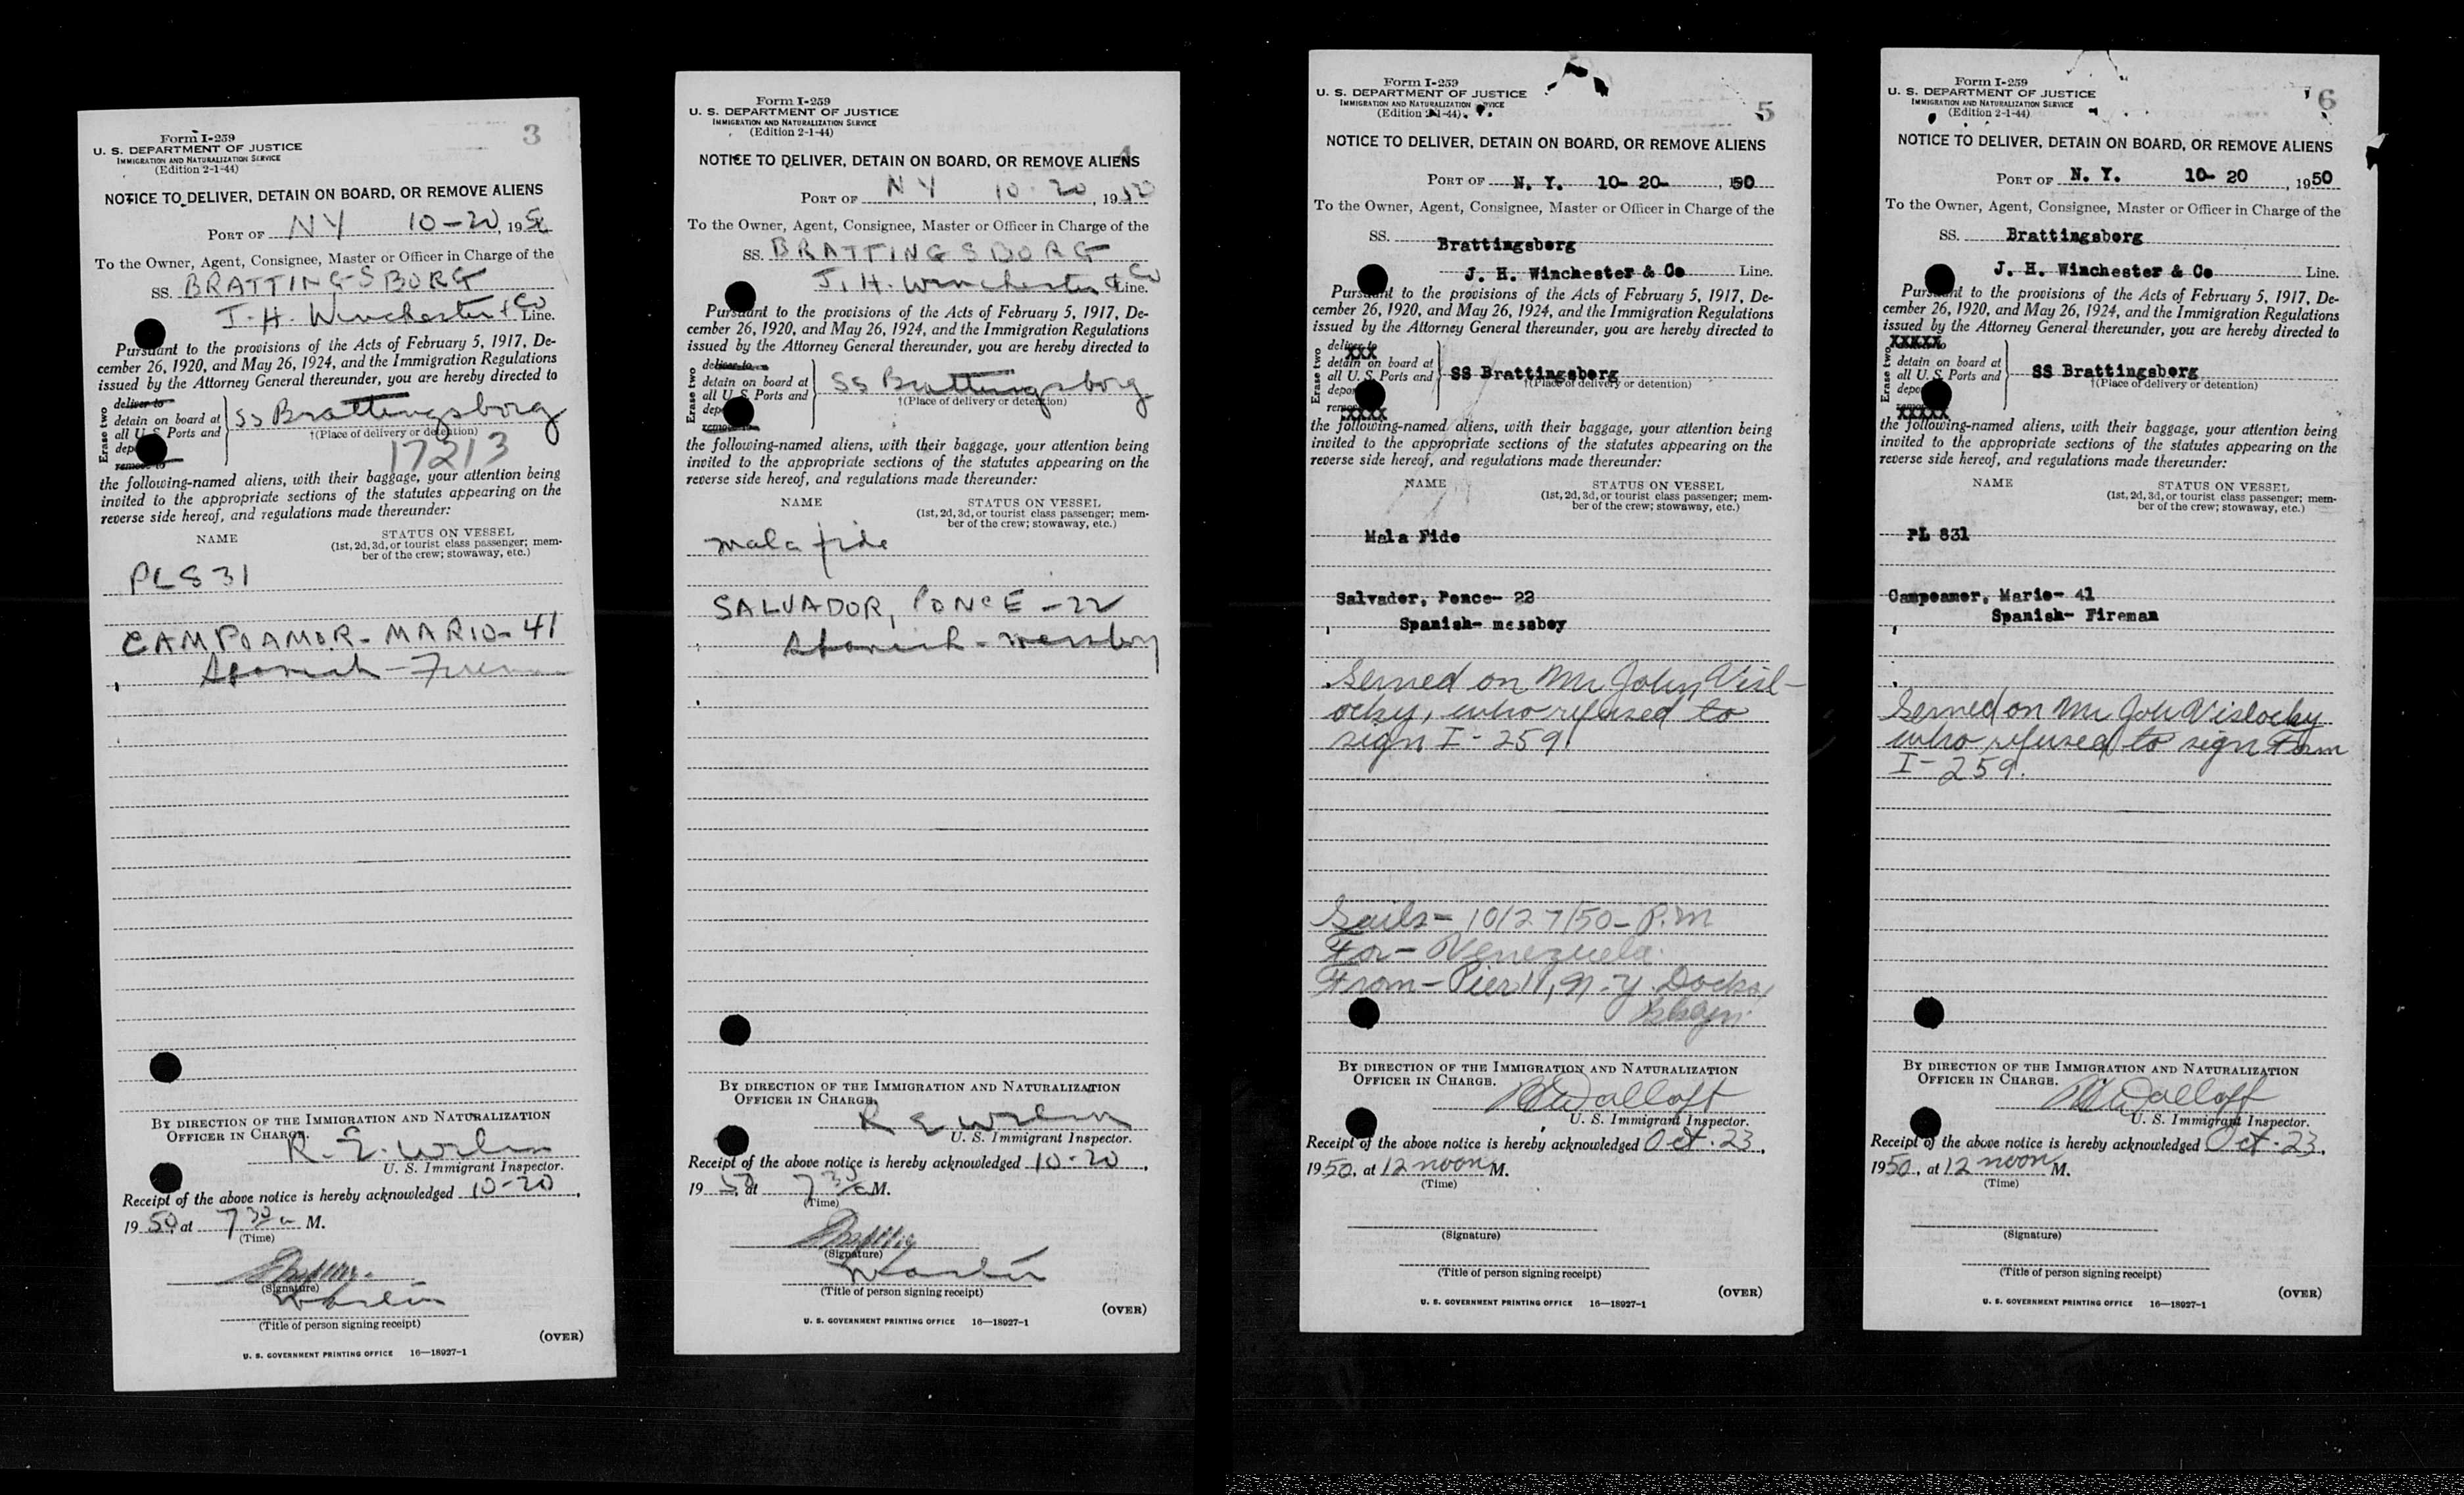 3
Form I-259
U. S. DEPARTMENT OF JUSTICE
IMMIGRATION AND NATURALIZATION SERVICE
(Edition 2-1-44)
NOTICE TO DELIVER, DETAIN ON BOARD, OR REMOVE ALIENS
PORT OF NY 10-20, 1950
To the Owner, Agent, Consignee, Master or Officer in Charge of the
SS. BRATTINGSBORG
J. H. Winchester & Co Line.
Pursuant to the provisions of the Acts of February 5, 1917, De-
cember 26, 1920, and May 26, 1924, and the Immigration Regulations
issued by the Attorney General thereunder, you are hereby directed to
Erase two
deliver to
detain on board at
all U. S. Ports and
remove to
SS Brattingsborg
†(Place of delivery or detention)
17213
the following-named aliens, with their baggage, your attention being
invited to the appropriate sections of the statutes appearing on the
reverse side hereof, and regulations made thereunder:
NAME STATUS ON VESSEL
(1st, 2d, 3d, or tourist class passenger; mem-
ber of the crew; stowaway, etc.)
PL 831
CAMPOAMOR - MARIO - 41
Spanish - Fireman
BY DIRECTION OF THE IMMIGRATION AND NATURALIZATION
OFFICER IN CHARGE.
R. E.
U. S. Immigrant Inspector.
Receipt of the above notice is hereby acknowledged 10-20,
1950, at 7 30 a M.
(Time)
(Signature)
(Title of person signing receipt)
(OVER)
U. S. GOVERNMENT PRINTING OFFICE 16—18927-1
4
Form I-259
U. S. DEPARTMENT OF JUSTICE
IMMIGRATION AND NATURALIZATION SERVICE
(Edition 2-1-44)
NOTICE TO DELIVER, DETAIN ON BOARD, OR REMOVE ALIENS
PORT OF NY 10-20, 1950
To the Owner, Agent, Consignee, Master or Officer in Charge of the
SS. BRATTINGSBORG
J. H. Winchester & Co Line.
Pursuant to the provisions of the Acts of February 5, 1917, De-
cember 26, 1920, and May 26, 1924, and the Immigration Regulations
issued by the Attorney General thereunder, you are hereby directed to
Erase two
deliver to
detain on board at
all U. S. Ports and
remove to
SS Brattingsborg
†(Place of delivery or detention)
the following-named aliens, with their baggage, your attention being
invited to the appropriate sections of the statutes appearing on the
reverse side hereof, and regulations made thereunder:
NAME STATUS ON VESSEL
(1st, 2d, 3d, or tourist class passenger; mem-
ber of the crew; stowaway, etc.)
mala fide
SALVADOR, PONCE - 22
Spanish - messboy
BY DIRECTION OF THE IMMIGRATION AND NATURALIZATION
OFFICER IN CHARGE.
R E
U. S. Immigrant Inspector.
Receipt of the above notice is hereby acknowledged 10-20,
1950, at 7 30 a M.
(Time)
(Signature)
(Title of person signing receipt)
(OVER)
U. S. GOVERNMENT PRINTING OFFICE 16—18927-1
5
Form I-259
U. S. DEPARTMENT OF JUSTICE
IMMIGRATION AND NATURALIZATION SERVICE
(Edition 2-1-44)
NOTICE TO DELIVER, DETAIN ON BOARD, OR REMOVE ALIENS
PORT OF N. Y. 10- 20- , 1950
To the Owner, Agent, Consignee, Master or Officer in Charge of the
SS. Brattingsborg
J. H. Winchester & Co Line.
Pursuant to the provisions of the Acts of February 5, 1917, De-
cember 26, 1920, and May 26, 1924, and the Immigration Regulations
issued by the Attorney General thereunder, you are hereby directed to
Erase two
deliver to
XXX
detain on board at
all U. S. Ports and
XXXX
SS Brattingsborg
†(Place of delivery or detention)
the following-named aliens, with their baggage, your attention being
invited to the appropriate sections of the statutes appearing on the
reverse side hereof, and regulations made thereunder:
NAME STATUS ON VESSEL
(1st, 2d, 3d, or tourist class passenger; mem-
ber of the crew; stowaway, etc.)
Mala Fide
Salvador, Ponce- 22
Spanish- messboy
Served on Mr John Visl-
ocky, who refused to
sign I-259.
Sails- 10/27/50- P.M
For- Venezuela.
From- Pier 11, N.Y. Docks,
Bklyn.
BY DIRECTION OF THE IMMIGRATION AND NATURALIZATION
OFFICER IN CHARGE.
U. S. Immigrant Inspector.
Receipt of the above notice is hereby acknowledged Oct. 23,
1950, at 12 noon M.
(Time)
(Signature)
(Title of person signing receipt)
(OVER)
U. S. GOVERNMENT PRINTING OFFICE 16—18927-1
6
Form I-259
U. S. DEPARTMENT OF JUSTICE
IMMIGRATION AND NATURALIZATION SERVICE
(Edition 2-1-44)
NOTICE TO DELIVER, DETAIN ON BOARD, OR REMOVE ALIENS
PORT OF N. Y. 10- 20 , 1950
To the Owner, Agent, Consignee, Master or Officer in Charge of the
SS. Brattingsborg
J. H. Winchester & Co Line.
Pursuant to the provisions of the Acts of February 5, 1917, De-
cember 26, 1920, and May 26, 1924, and the Immigration Regulations
issued by the Attorney General thereunder, you are hereby directed to
Erase two
XXXXX
detain on board at
all U. S. Ports and
XXXXX
SS Brattingsborg
†(Place of delivery or detention)
the following-named aliens, with their baggage, your attention being
invited to the appropriate sections of the statutes appearing on the
reverse side hereof, and regulations made thereunder:
NAME STATUS ON VESSEL
(1st, 2d, 3d, or tourist class passenger; mem-
ber of the crew; stowaway, etc.)
PL 831
Campoamor, Mario- 41
Spanish- Fireman
Served on Mr Joh Vislocky
who refused to sign Form
I-259.
BY DIRECTION OF THE IMMIGRATION AND NATURALIZATION
OFFICER IN CHARGE.
U. S. Immigrant Inspector.
Receipt of the above notice is hereby acknowledged Oct. 23,
1950, at 12 noon M.
(Time)
(Signature)
(Title of person signing receipt)
(OVER)
U. S. GOVERNMENT PRINTING OFFICE 16—18927-1